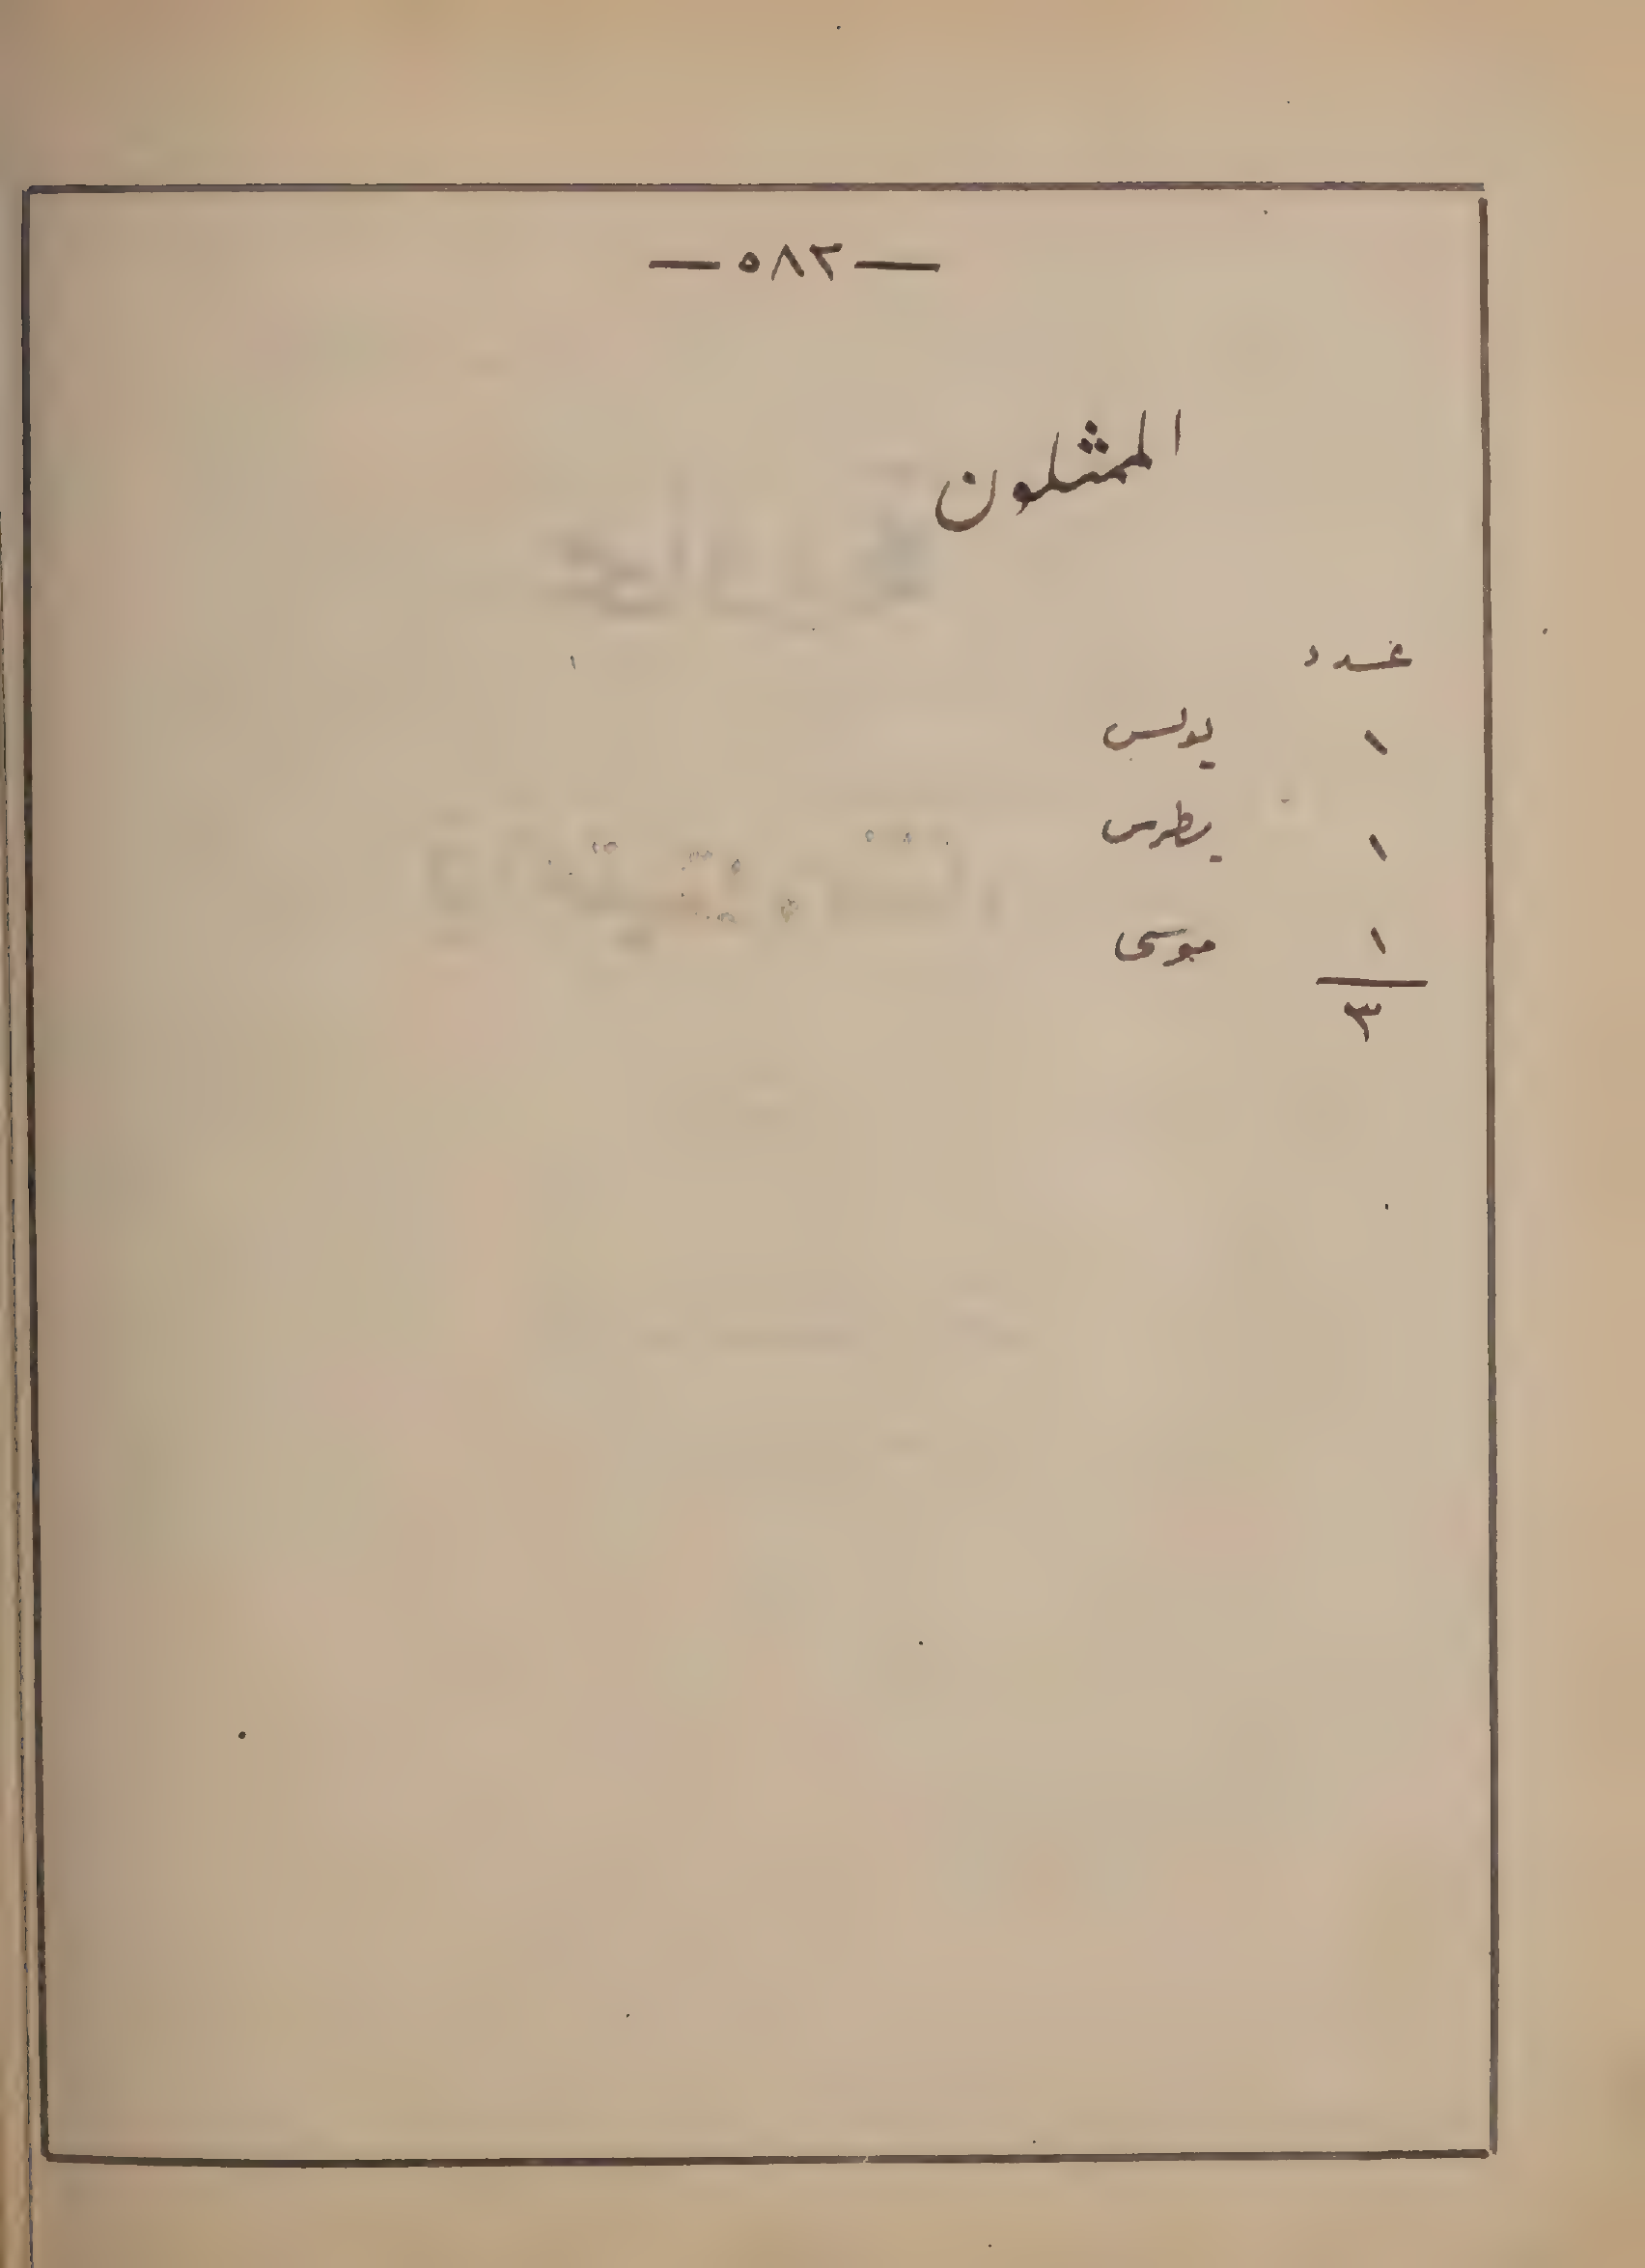 — ٥٨٣ —
الممثلون
عدد
١ بولس
١ بطرس
١ موسى
٣